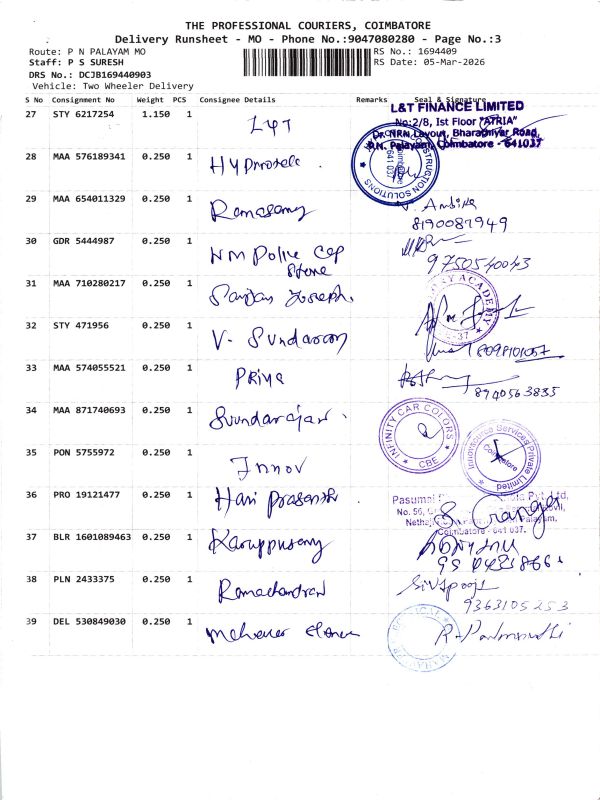 THE PROFESSIONAL COURIERS, COIMBATORE
Delivery Runsheet - MO - Phone No.:9047080280 - Page No.:3
Route: P N PALAYAM MO
RS No.: 1694409
Staff: P S SURESH
RS Date: 05-Mar-2026
DRS No.: DCJB169440903
Vehicle: Two Wheeler Delivery
S No Consignment No Weight PCS Consignee Details Remarks Seal & Signature
L&T FINANCE LIMITED
No:2/8, Ist Floor "ATRIA"
Dr. NRN Layout, Bharathiyar Road,
P.N. Palayam, Coimbatore - 641037
27 STY 6217254 1.150 1 L&T
28 MAA 576189341 0.250 1
CONSTRUCTION SOLUTIONS
Coimbatore
641 037
29 MAA 654011329 0.250 1 Ramasamy
8190087949
30 GDR 5444987 0.250 1 NM Police Cap Store
9750540043
31 MAA 710280217 0.250 1 Sanjay Joseph.
ACADEMY
32 STY 471956 0.250 1 V. Sundaram
8098101057
33 MAA 574055521 0.250 1 Priya
8940563835
34 MAA 871740693 0.250 1 Sundarajan
INFINITY CAR COLORS
CBE
35 PON 5755972 0.250 1 Innov
Innovsource Services Private Limited
Coimbatore
36 PRO 19121477 0.250 1 Hari Prasanth
Pasumai
Pvt. Ltd,
No. 56,
Netha
Palayam,
Coimbatore - 641 037.
37 BLR 1601089463 0.250 1 Karuppusamy
38 PLN 2433375 0.250 1 Ramachandran
Sivapooja
9363105253
39 DEL 530849030 0.250 1